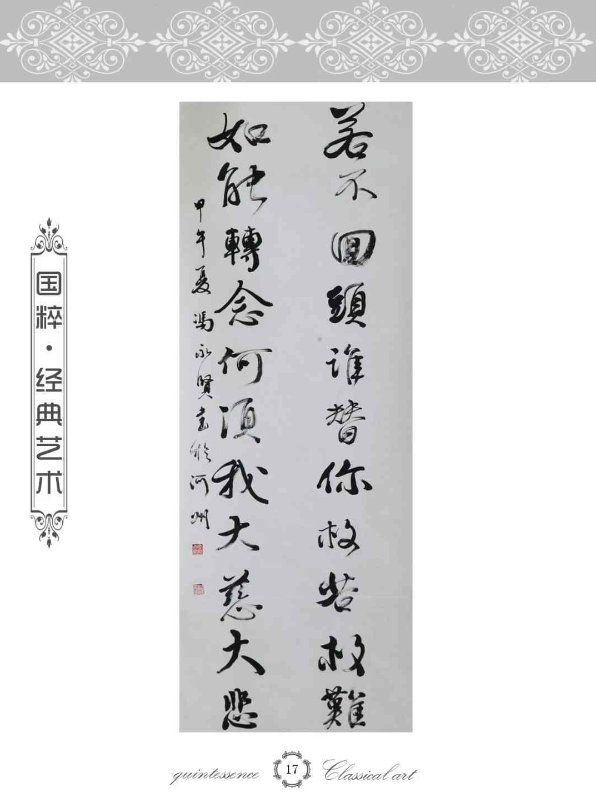 若不回頭誰替你救苦救難
如能轉念何須我大慈大悲
甲午夏馮永賢書於河州
国粹·经典艺术
quintessence 17 Classical art